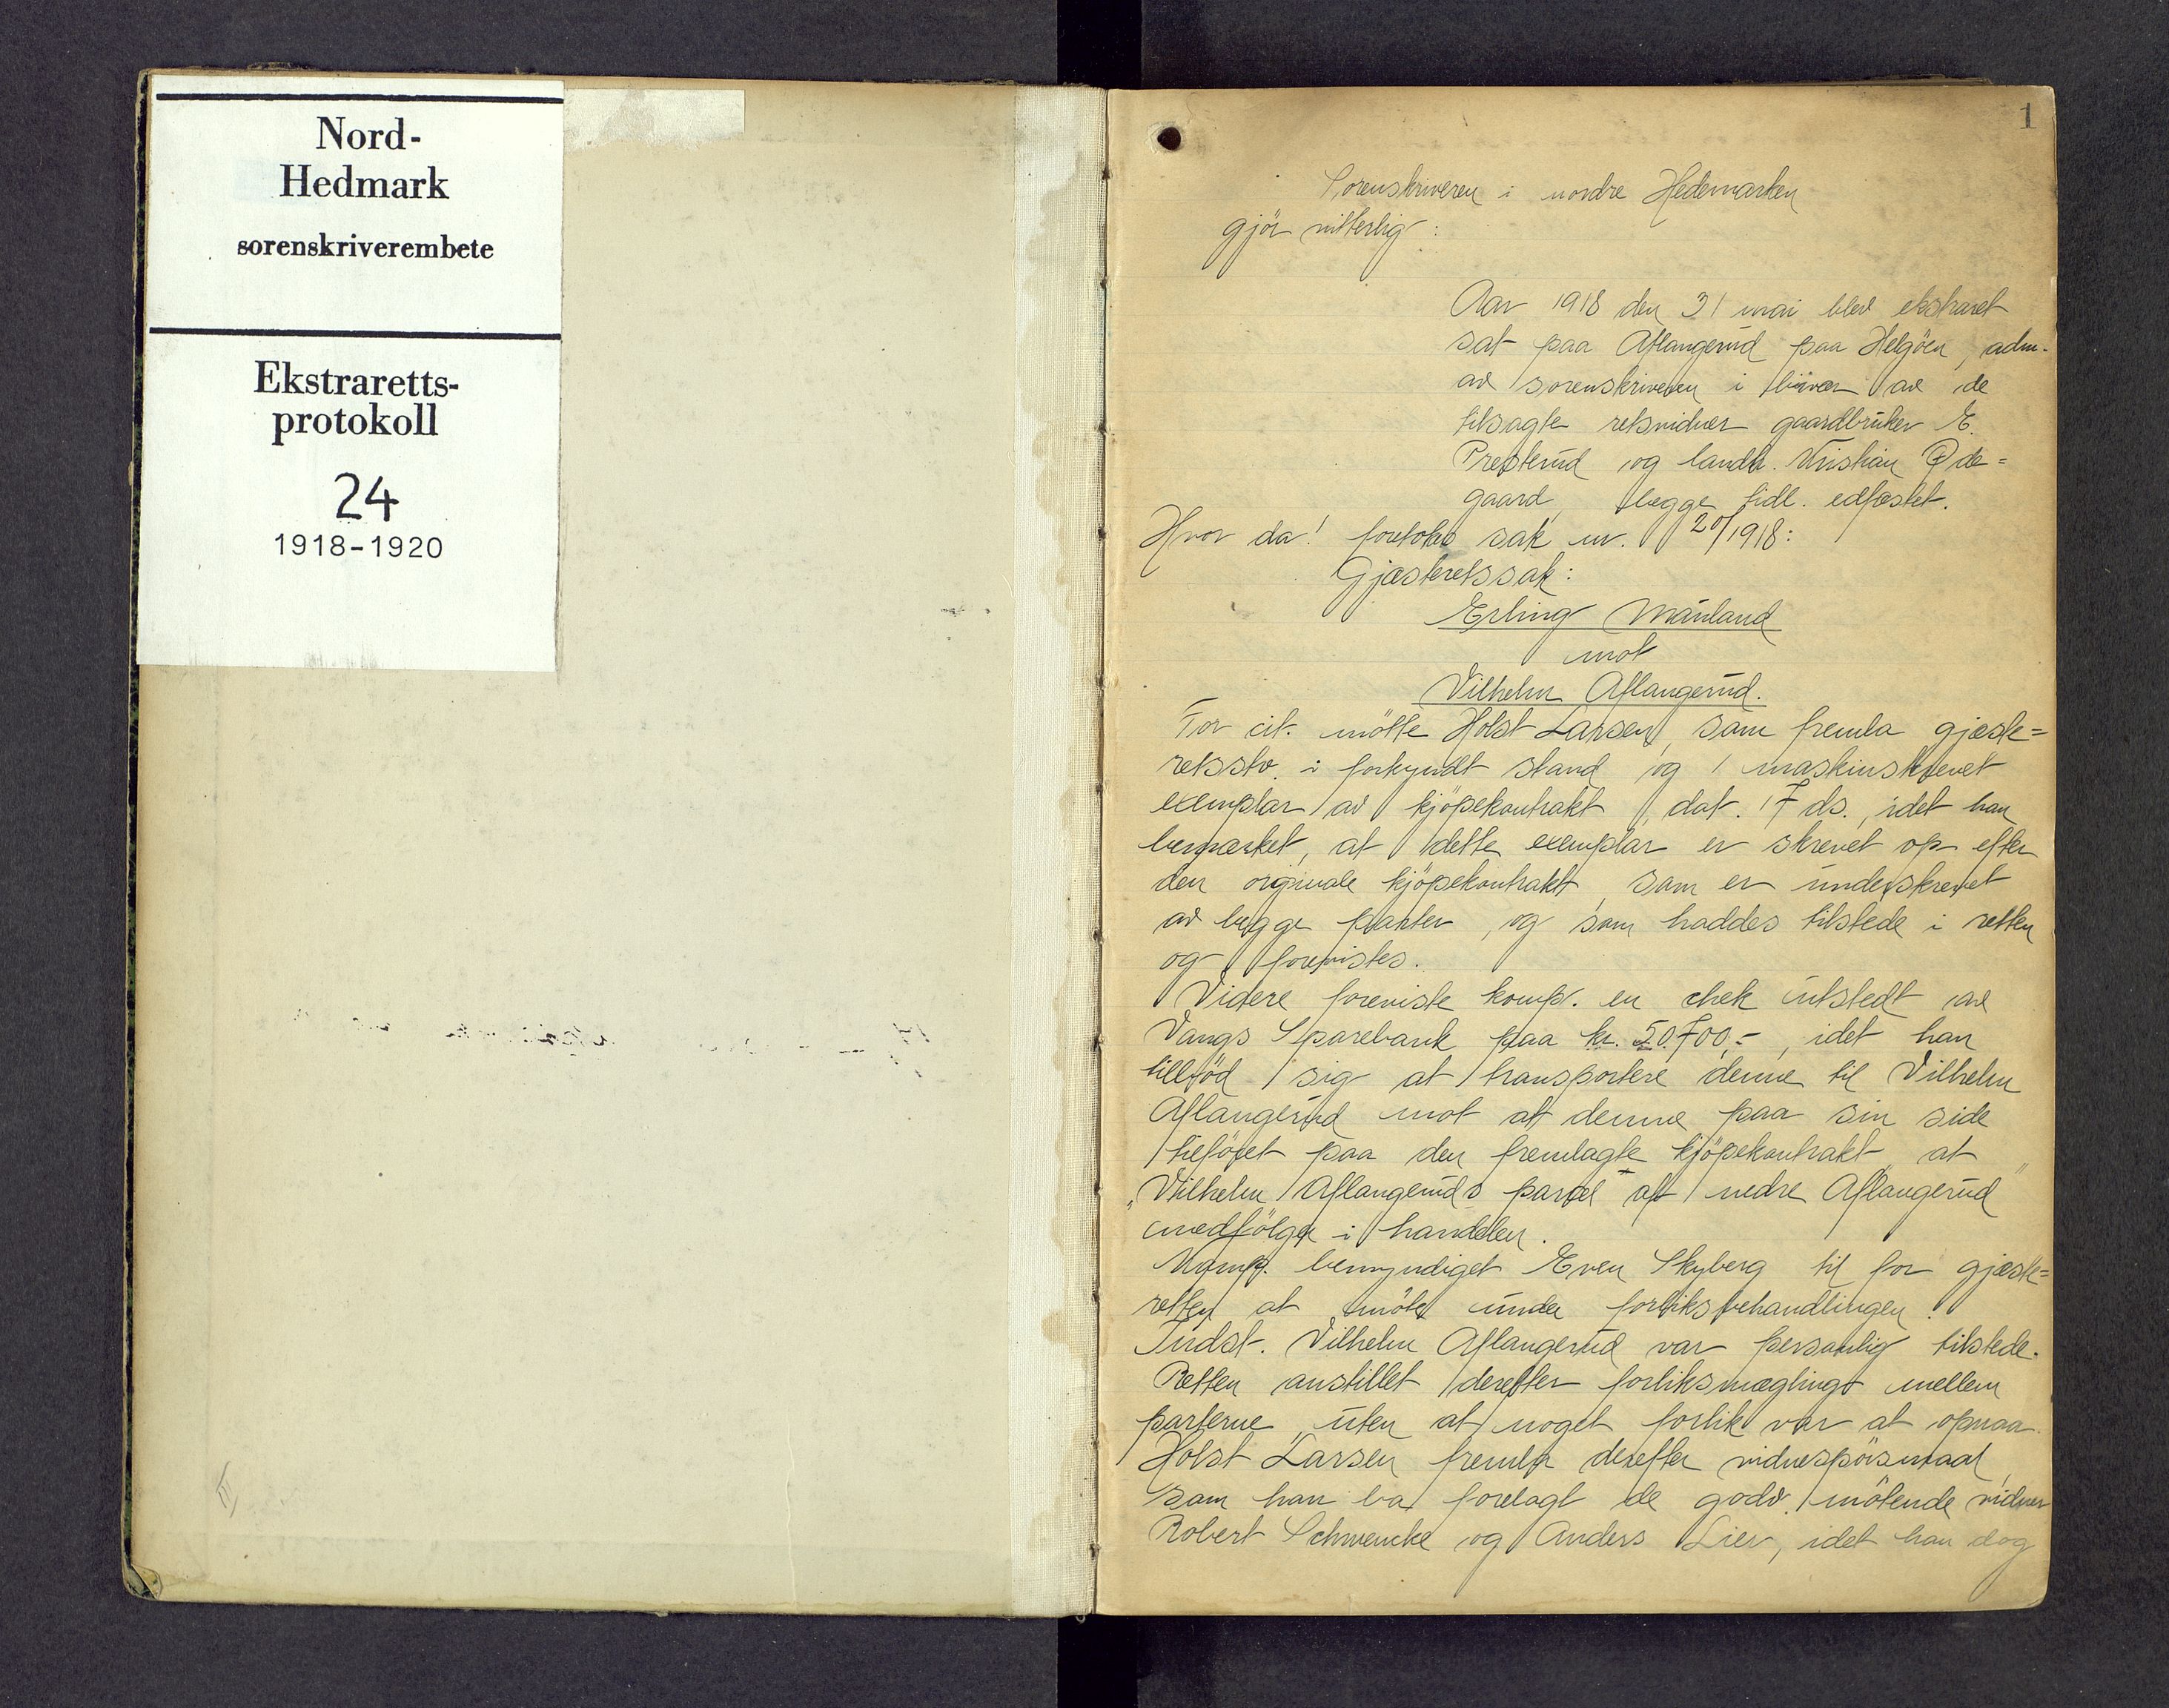 Nord-
Hedmark
sorenskriverembete
Ekstraretts-
protokoll
24
1918-1920
1
Sorenskriveren i nordre Hedemarken
gjör vitterlig:
Aar 1918 den 31 mai blev ekstraret
sat paa Aflangerud paa Helgöen, adm.
av sorenskriveren i bivær av de
tilsagte retsvidner gaardbruker E.
Presterud og landh. Kristian Øde=
gaard, begge tidl. edfæstet.
Hvor da! foretokes sak nr. 20/1918:
Gjæsteretssak:
Erling Mauland
mot
Vilhelm Aflangerud.
For cit. mötte Holst Larsen, som fremla gjæste=
retsstv. i forkyndt stand og 1 maskinskrevet
exemplar av kjöpekontrakt, dat. 17 ds., idet han
bemærket, at dette exemplar er skrevet op efter
den orginale kjöpekontrakt, som er underskrevet
av begge parter, og som haddes tilstede i retten
og forevistes.
Videre foreviste komp. en chek utstedt av
Vangs Sparebank paa kr. 50.700,-, idet han
tilböd sig at transportere denne til Vilhelm
Aflangerud mot at denne paa sin side
tilföiet paa den fremlagte kjöpekontrakt at
„Vilhelm Aflangeruds parcel af nedre Aflangerud"
medfölger i handelen.
Komp. bemyndiget Even Skyberg til for gjæste=
retten at möte under forliksbehandlingen.
Indst. Vilhelm Aflangerud var personlig tilstede.
Retten anstillet derefter forliksmægling mellem
parterne uten at noget forlik var at opnaa.
Holst Larsen fremla derefter vidnespörsmaal,
som han ba forelagt de godv. mötende vidner
Robert Schwencke og Anders Lier, idet han dog